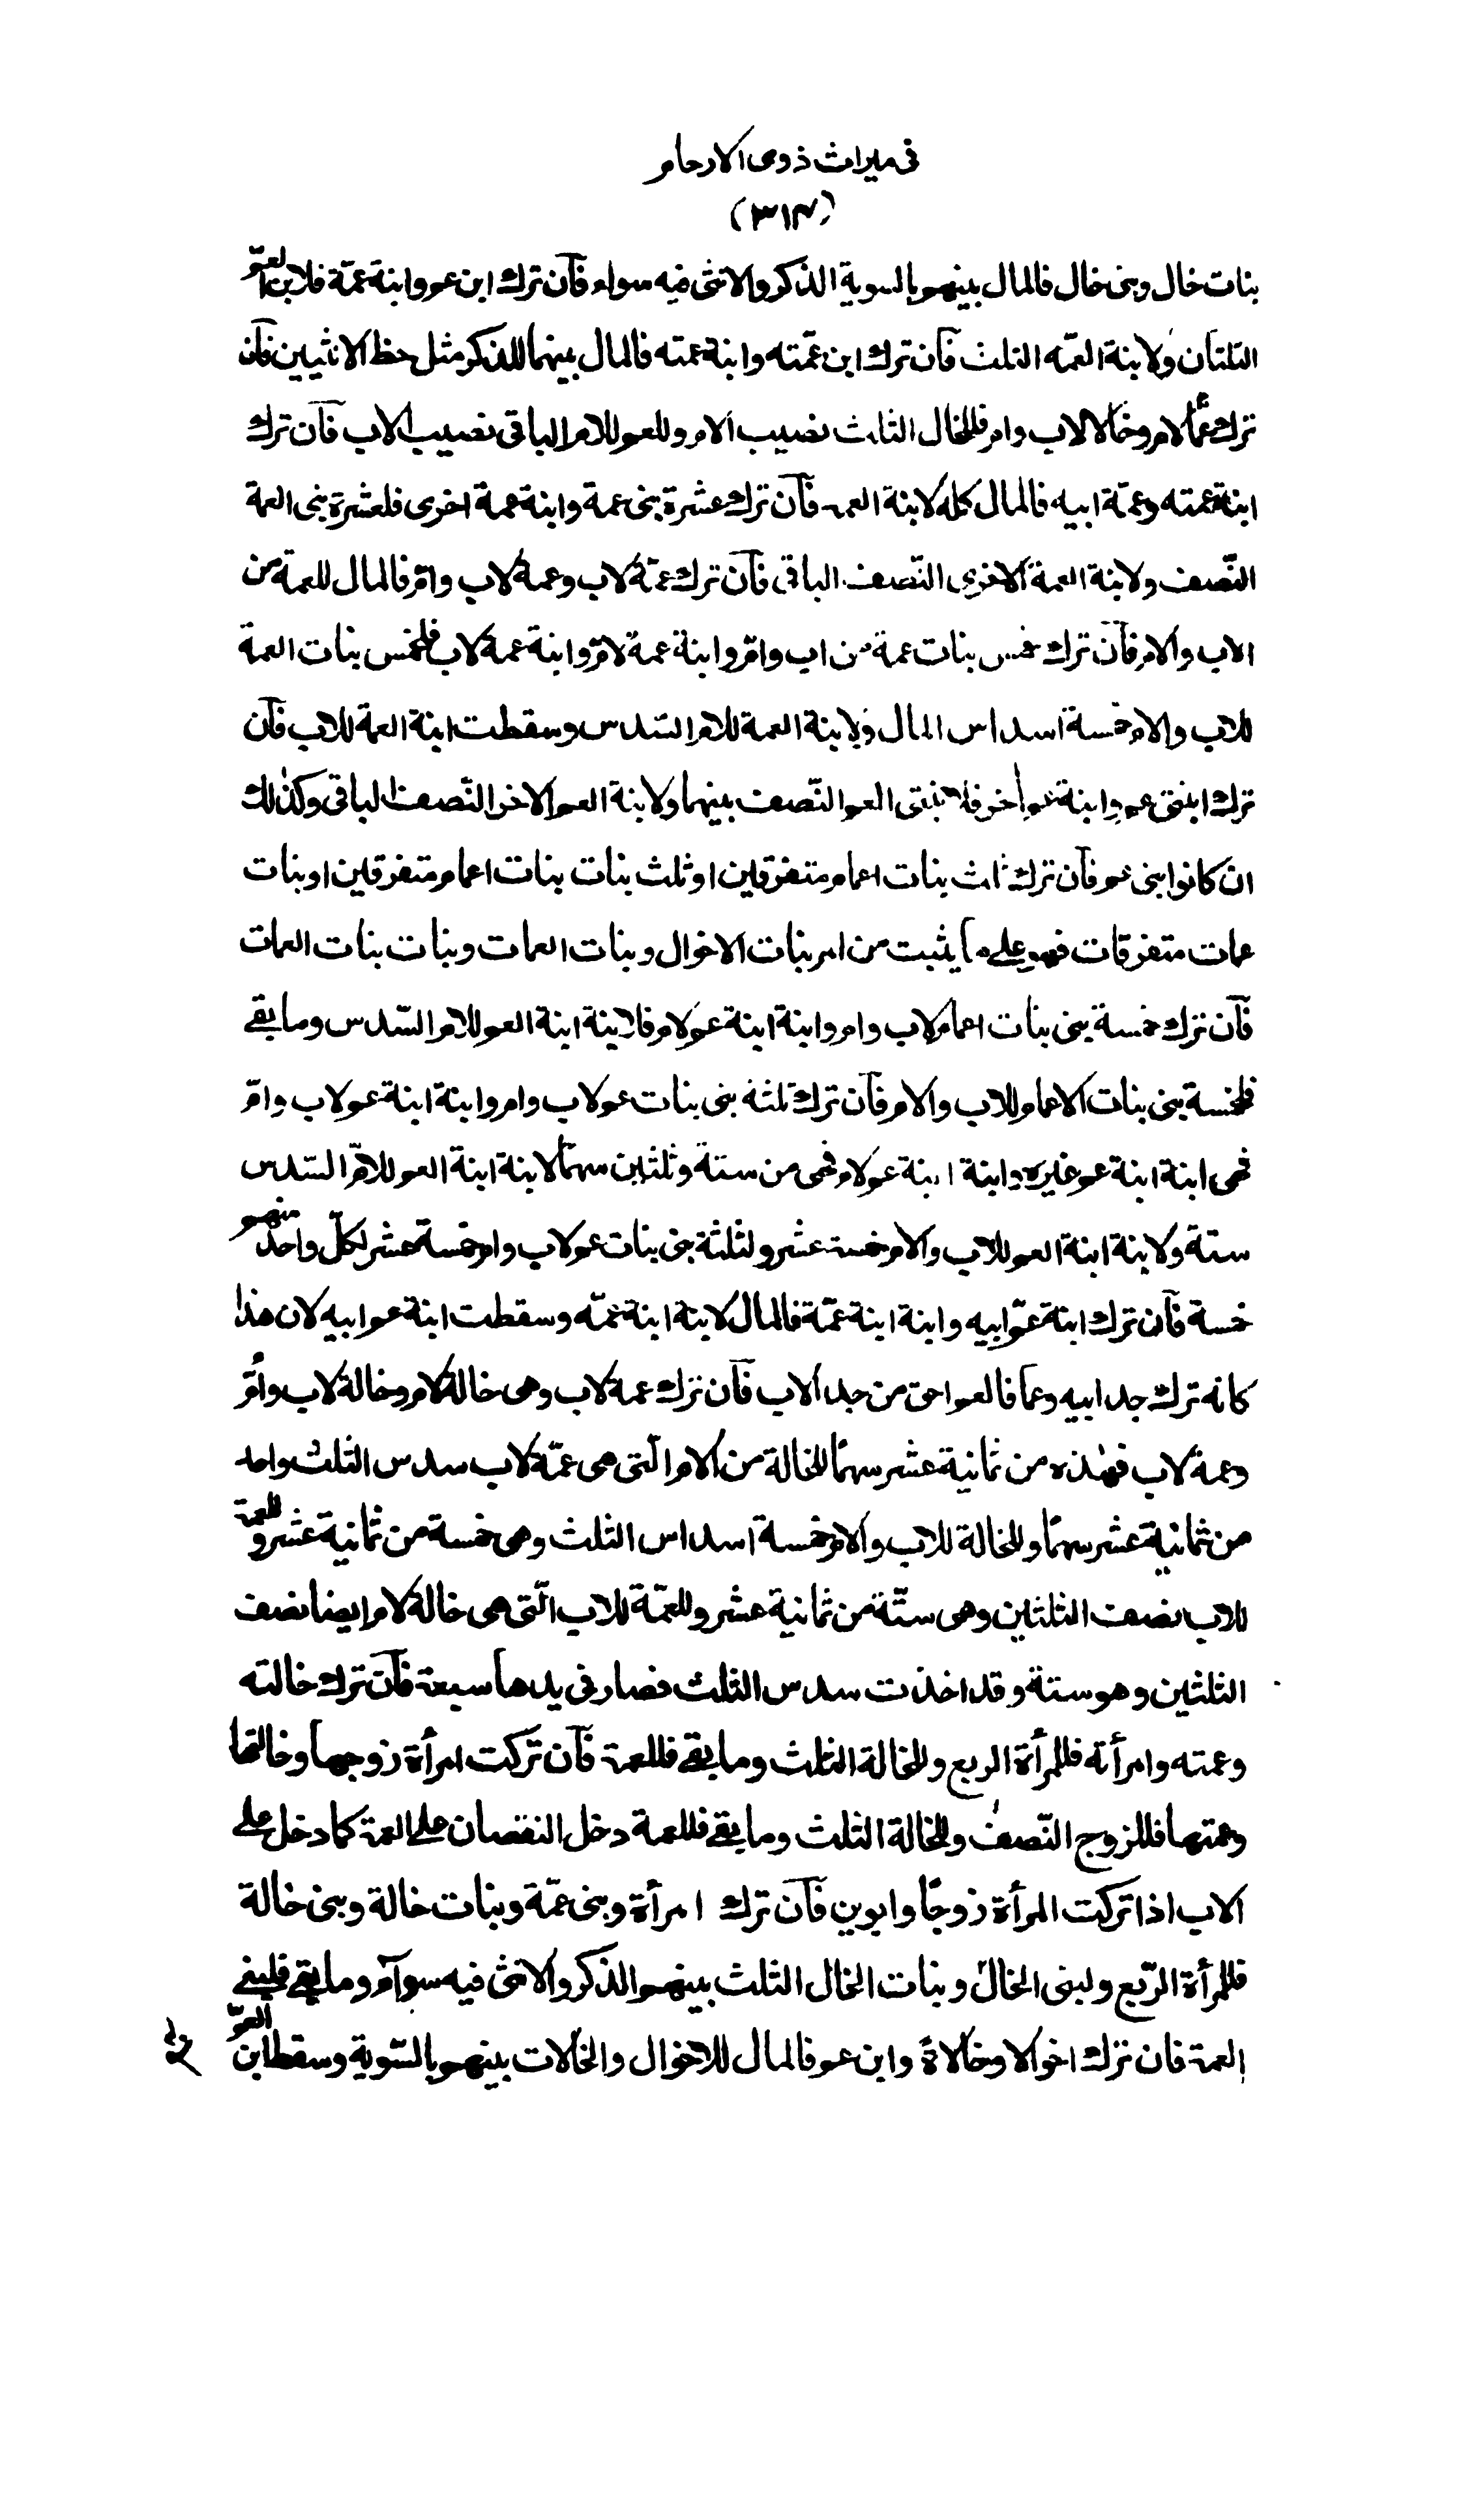 في ميراث ذوى الارحام
(٣١٤)
بنات خال وبنى خال فالمال بينهم بالسوية الذكر والانثى فيه سواء فآن ترك ابن عم وابنة عمّة فلابن العمّ
الثلثان ولابنة العمّه الثلث فآن ترك ابن عمّته وابنة عمته فالمال بينهما للذكر مثل حظ الانثيين فآن
ترك عمًّا لام وخالا لاب وام فللخال الثلث نصيب الام وللعم للام الباقى نصيب الاب فآن ترك
ابنة عمته وعمّة ابيه فالمال كله لابنة العمة فآن ترك عشرة بنى عمة وابنة عمة اخرى فلعشرة بنى العمة
النّصف ولابنة العمة الاخرى النّصف الباقى فآن ترك عمّة لاب وعمة لاب وامّ فالمال للعمة من
الاب والام فآن ترك خمس بنات عمة من اب وامّ وابنة عمة لامّ وابنة عمة لاب فلخمس بنات العمة
للاب والام خمسة اسداس المال ولابنة العمة للام السّدس وسقطت ابنة العمة للاب فآن
ترك ابنتى عم وابنة عم اخر فلابنتى العم النّصف بينهما ولابنة العم الاخر النّصف الباقى وكذلك
ان كانوا بنى عم فآن ترك ثلث بنات اعمام متفرقين او ثلث بنات بنات اعمام متفرقين او بنات
عمات متفرقات فهو على ما يثبت من امر بنات الاخوال وبنات العمات وبنات بنات العمات
فآن ترك خمسة بنى بنات اعمام لاب وام وابنة ابنة عم لام فلابنة ابنة العم للام السّدس وما بقے
فلخمسة بنى بنات الاعمام للاب والام فآن ترك ثلثة بنى بنات عم لاب وام وابنة ابنة عم لاب وامّ
فهى ابنة ابنة عم غيره وابنة ابنة عم لام فهى من ستة وثلثين سهمًا لابنة ابنة العم للامّ السّدس
ستة ولابنة ابنة العم للاب والام خمسة عشر ولثلثة بنى بنات عم لاب وام خمسة عشر لكلّ واحد منهم
خمسة فآن ترك ابنة عمّ ابيه وابنة ابنة عمّة فالمال لابنة ابنة عمّه وسقطت ابنة عم ابيه لان هذا
كانه ترك جد ابيه وعما فالعم احق من جد الاب فآن ترك عمة لاب وهى خالة لام وخالة لاب وأمّ
وعمة لاب فهٰذه من ثمانية عشر سهمًا للخالة من الام الّتى هى عمّة لاب سدس الثلث واحد
من ثمانية عشر سهمًا وللخالة للاب والام خمسة اسداس الثلث وهى خمسة من ثمانية عشر وللعمة
للاب نصف الثلثين وهى ستّة من ثمانية عشر وللعمّة للاب الّتى هى خالة لام ايضا نصف
الثلثين وهو ستة وقد اخذت سدس الثلث فصار فى يدها سبعة فآن ترك خالته
وعمته وامرأته فللمرأة الربع وللخالة الثلث وما بقے فللعمة فآن تركت امرأة زوجها وخالتها
وعمتها فللزوج النّصف وللخالة الثلث وما بقے فللعمة دخل النقصان علے العمة كما دخل علے
الاب اذا تركت المرأة زوجًا وابوين فآن ترك امرأة وبنى عمّة وبنات خالة وبنى خالة
فللمرأة الرّبع ولبنى الخال وبنات الخال الثلث بينهم الذكر والانثى فيه سوآء وما بقے فلبنے
العمة فان ترك اخوالا وخالاة وابن عم فالمال للاخوال والخالات بينهم بالسّوية وسقط ابن العمّ